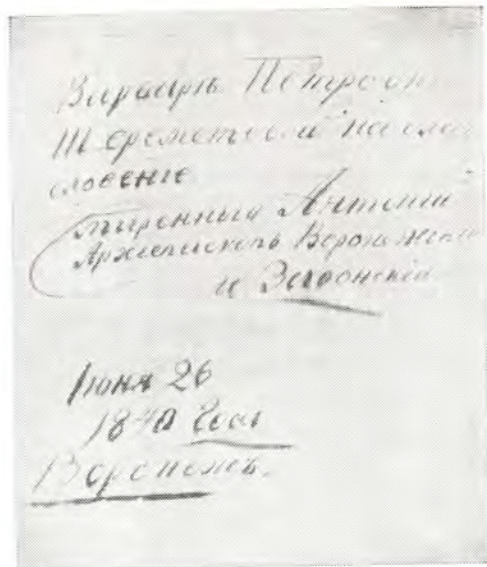 Варваръ Петровн
Шереметевой на бла
словение
Смиренный Антоній
Архіепископъ Воронежскій
и Задонскій
Іюня 26
1840 года
Воронежъ.